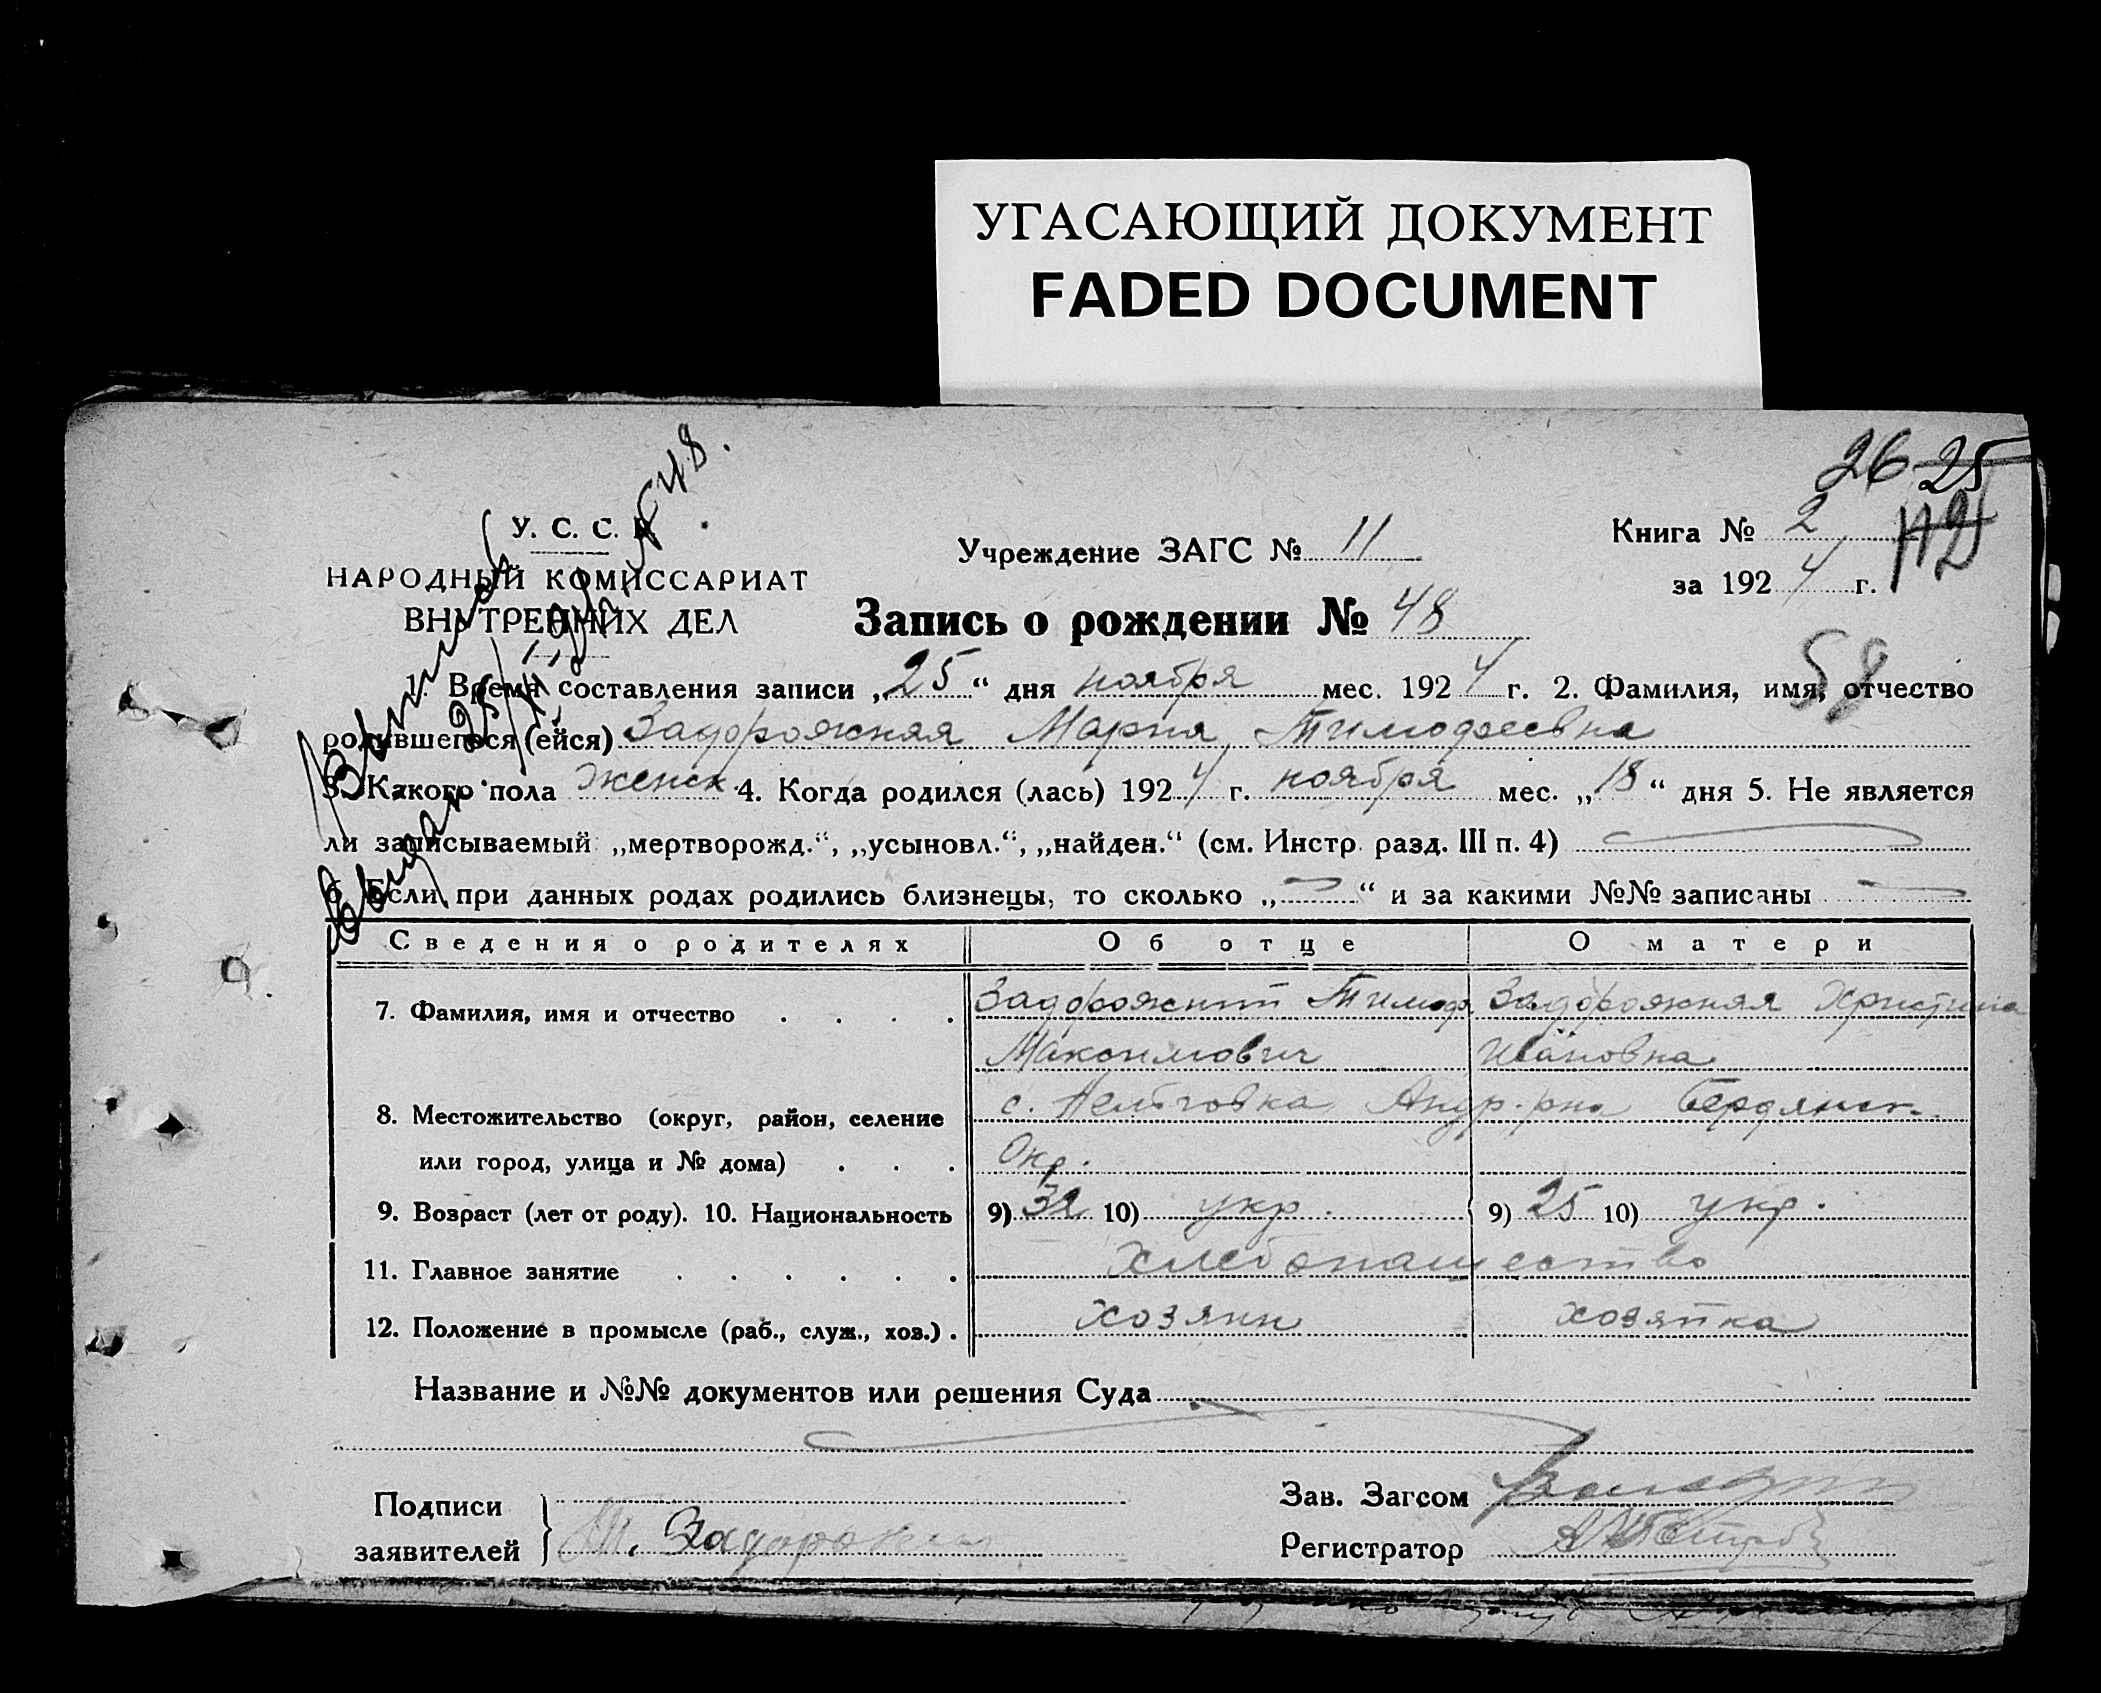 УГАСАЮЩИЙ ДОКУМЕНТ
FADED DOCUMENT
26 25
112
У. С. С. Р.
НАРОДНЫЙ КОМИССАРИАТ
ВНУТРЕННИХ ДЕЛ
Учреждение ЗАГС № 11
Книга № 2
за 1924 г.
Запись о рождении № 48
58
1. Время составления записи „25“ дня ноября мес. 1924 г. 2. Фамилия, имя, отчество
родившегося (ейся) Задорожная Мария Тимофеевна
3. Какого пола женск. 4. Когда родился (лась) 1924 г. ноября мес. „18“ дня 5. Не является
ли записываемый „мертворожд.“, „усыновл.“, „найден.“ (см. Инстр. разд. III п. 4)
6. Если при данных родах родились близнецы, то сколько „—“ и за какими №№ записаны —
Сведения о родителях Об отце О матери
7. Фамилия, имя и отчество Задорожный Тимоф. Задорожная Христина
Максимович Ивановна
8. Местожительство (округ, район, селение с. Андр. рна Бердянск.
или город, улица и № дома) Окр.
9. Возраст (лет от роду). 10. Национальность 9) 32 10) укр. 9) 25 10) укр.
11. Главное занятие хлебопашество
12. Положение в промысле (раб., служ., хоз.) хозяин хозяйка
Название и №№ документов или решения Суда
Подписи
заявителей Т. Задорожний
Зав. Загсом
Регистратор